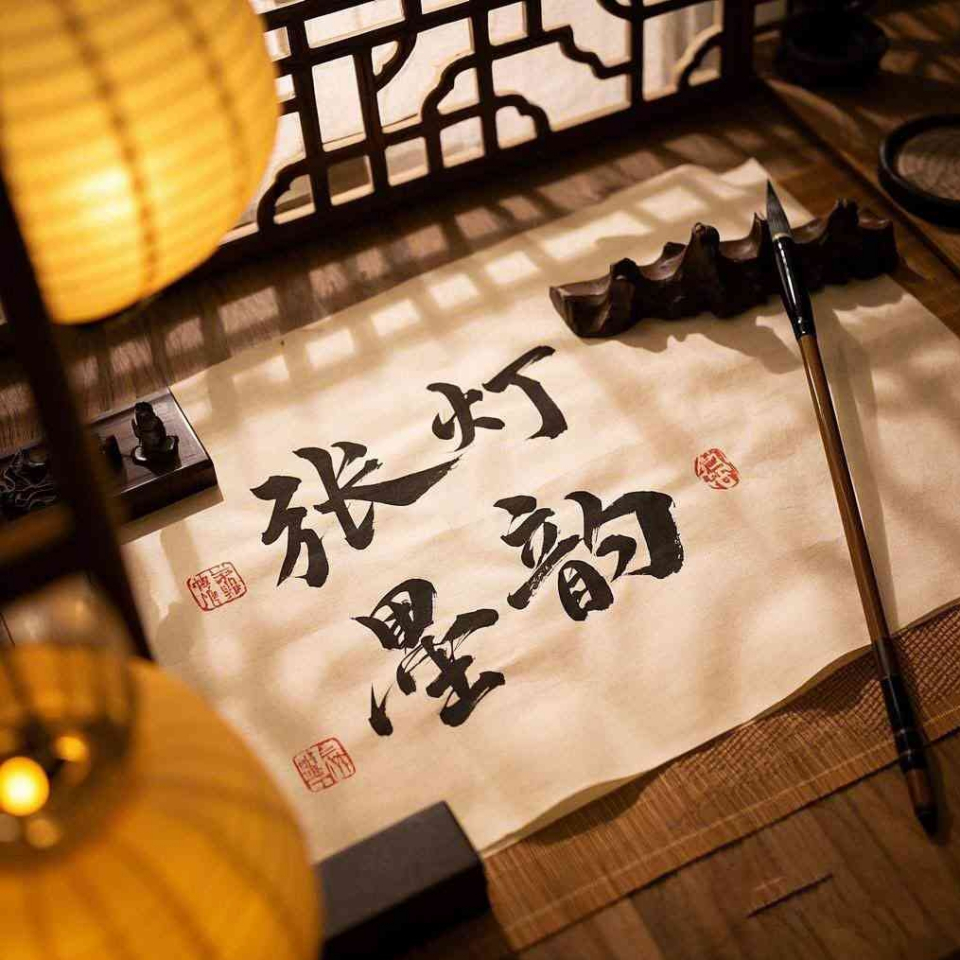 张灯
墨韵